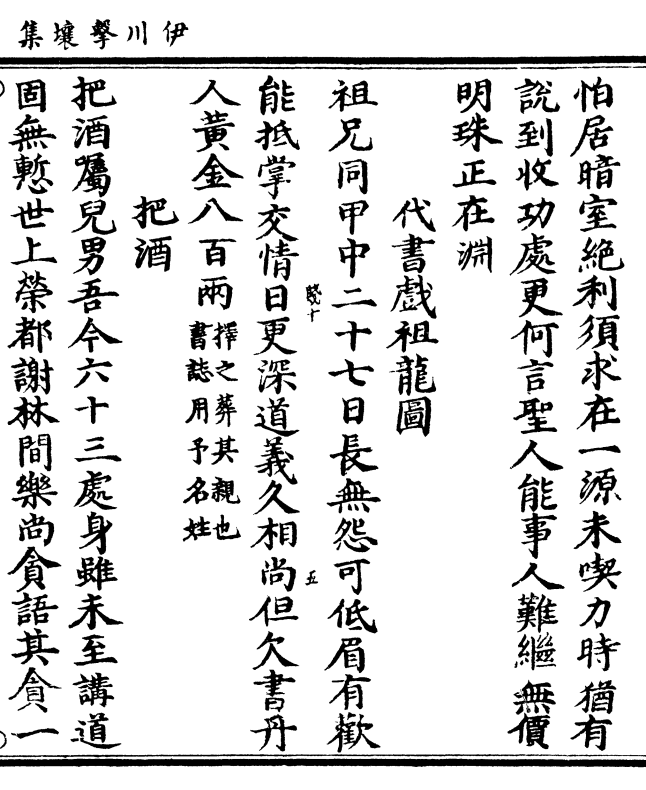 伊川擊壤集
怕居暗室絶利須求在一源未喫力時猶有
說到收功處更何言聖人能事人難繼無價
明珠正在淵
代書戲祖龍圖
祖兄同甲申二十七日長無怨可低眉有歡
能抵掌交情日更深道義久相尚但欠書丹
人黄金八百兩擇之葬其親也
書誌用予名姓
把酒
把酒囑兒男吾今六十三處身雖未至講道
固無慙世上榮都謝林間樂尚貪語其貪一
五